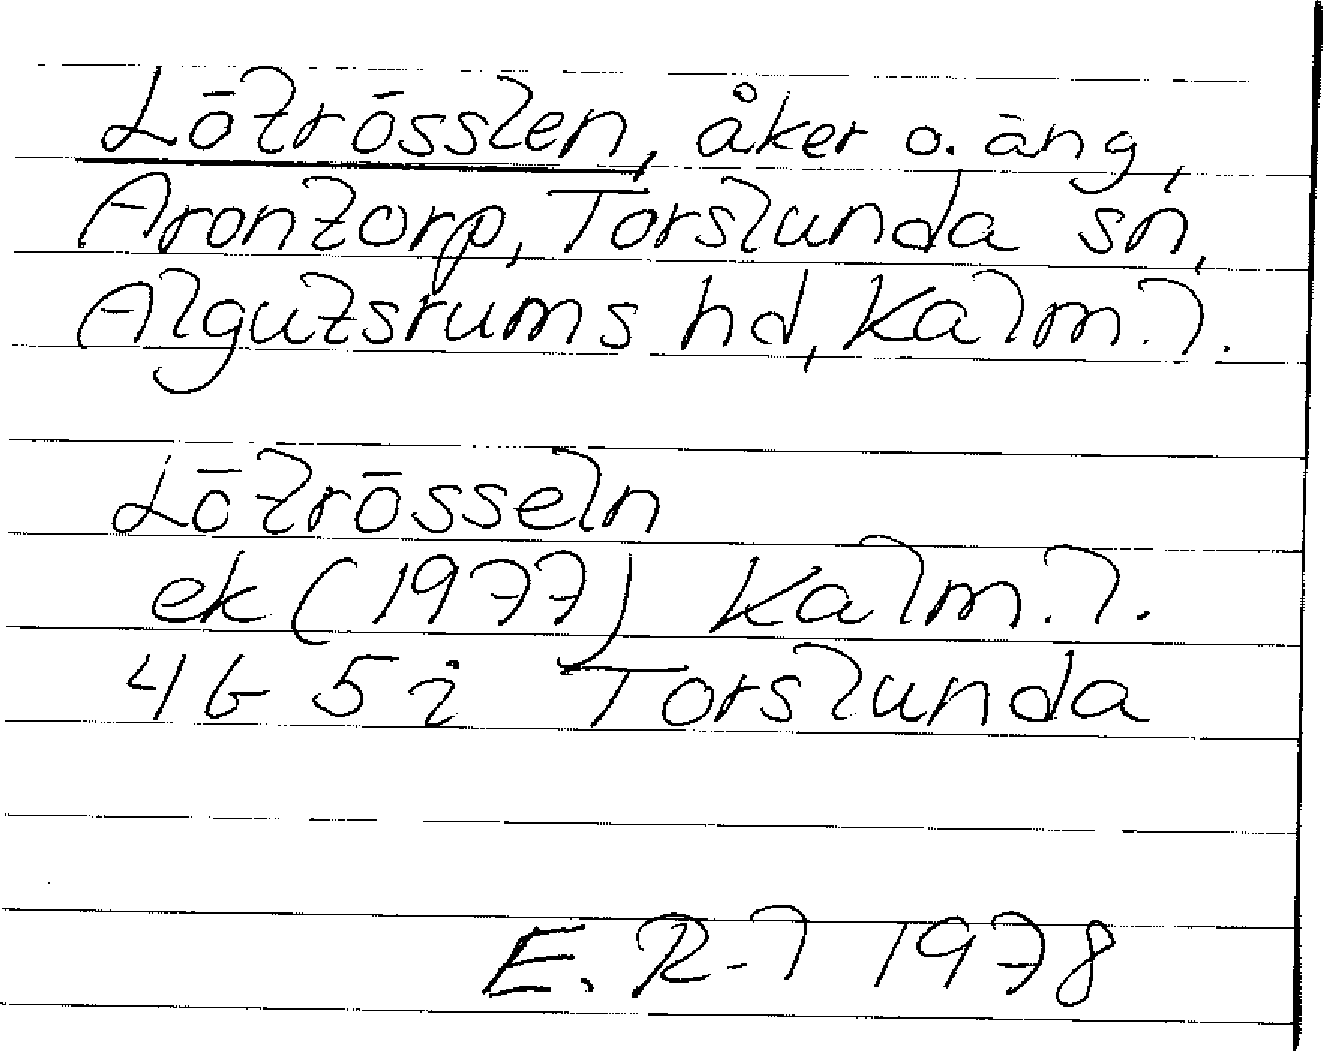 Lötrösslen, åker o. äng,
Arontorp, Torslunda sn,
Algutsrums hd, Kalm. l.
Lötrösseln
ek (1977) Kalm. l.
4G 5i Torslunda
E. R-l 1978